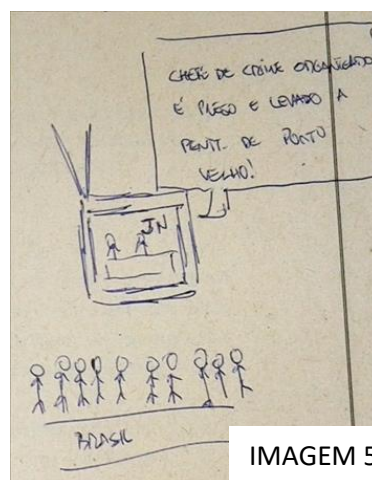 CHEFE DE CRIME ORGANIZADO
É PREGO E LEVADO A
PENIT. DE PORTO
VELHO!
JN
BRASIL
IMAGEM 5